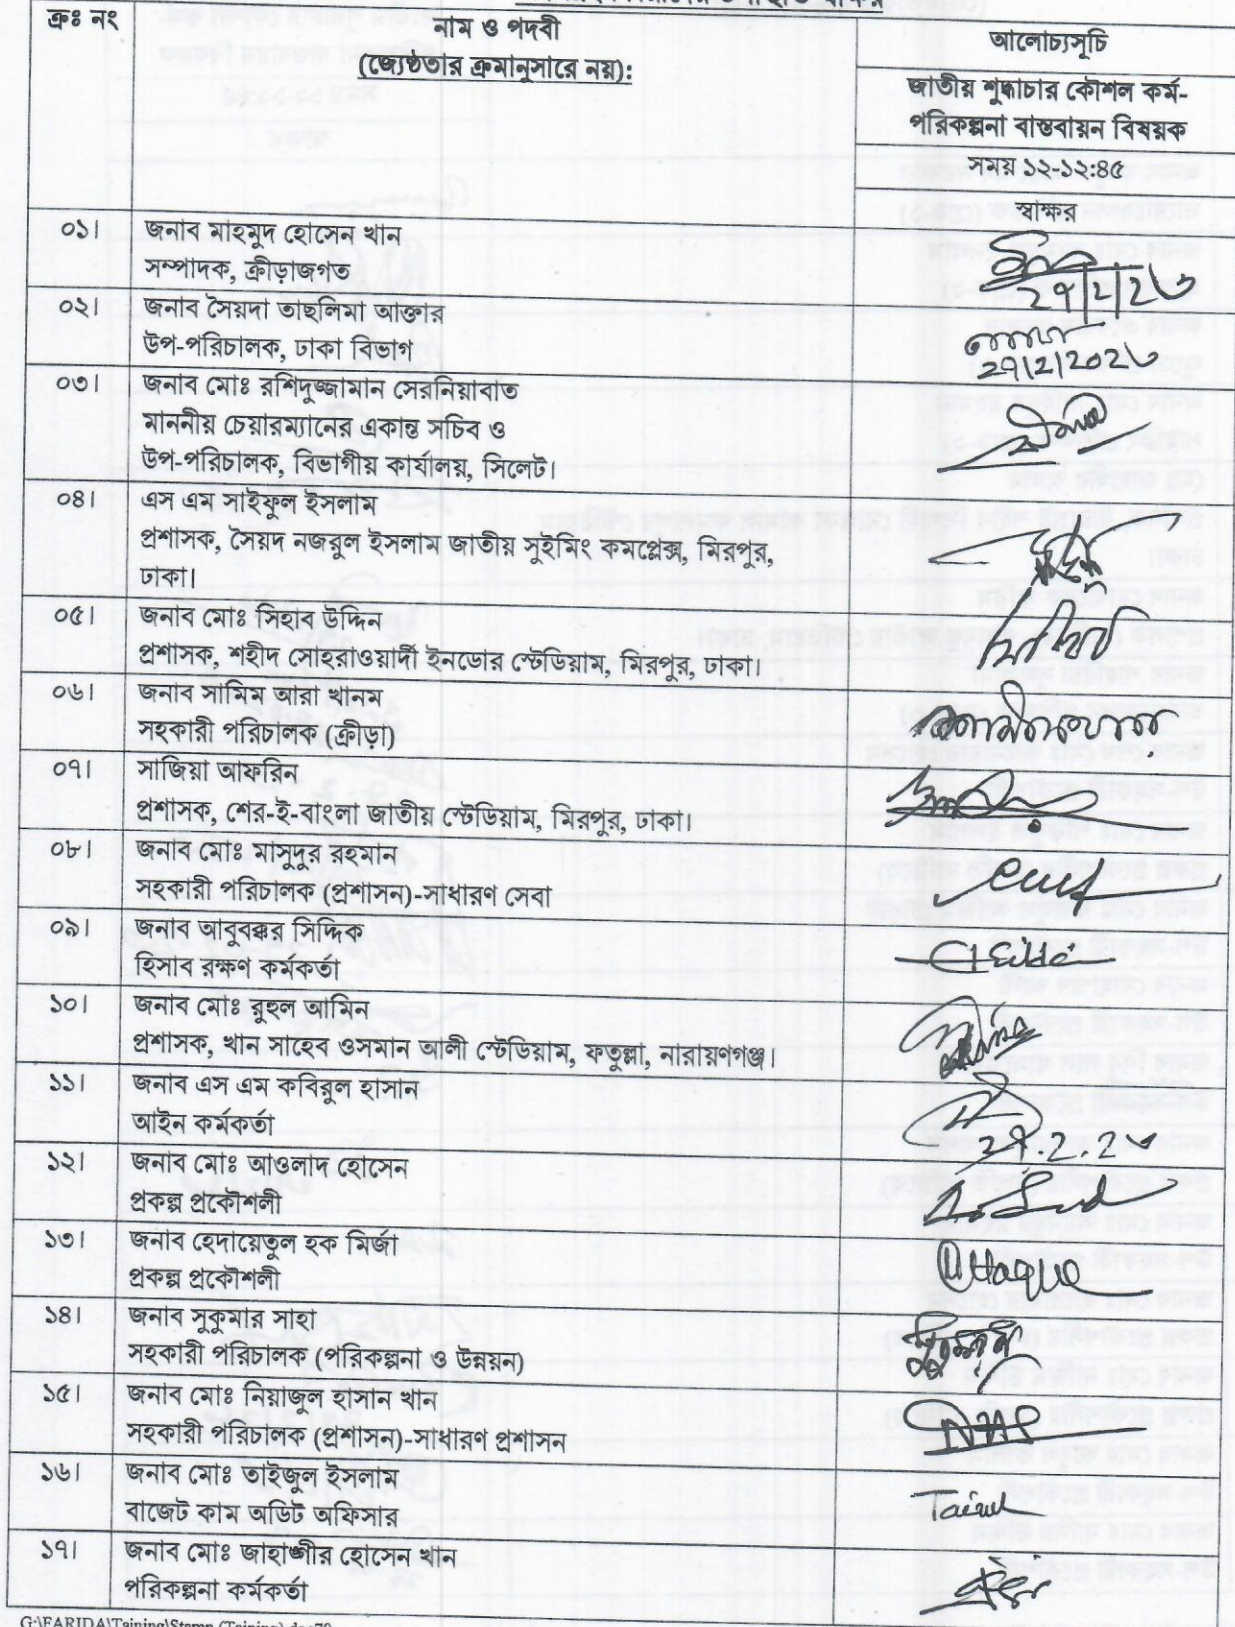 ক্রঃ নং
নাম ও পদবী
(জ্যেষ্ঠতার ক্রমানুসারে নয়):
আলোচ্যসূচি
জাতীয় শুদ্ধাচার কৌশল কর্ম-
পরিকল্পনা বাস্তবায়ন বিষয়ক
সময় ১২-১২:৪৫
স্বাক্ষর
০১। জনাব মাহমুদ হোসেন খান
সম্পাদক, ক্রীড়াজগত
২৭/২/২৩
০২। জনাব সৈয়দা তাছলিমা আক্তার
উপ-পরিচালক, ঢাকা বিভাগ
২৭/২/২০২৩
০৩। জনাব মোঃ রশিদুজ্জামান সেরনিয়াবাত
মাননীয় চেয়ারম্যানের একান্ত সচিব ও
উপ-পরিচালক, বিভাগীয় কার্যালয়, সিলেট।
০৪। এস এম সাইফুল ইসলাম
প্রশাসক, সৈয়দ নজরুল ইসলাম জাতীয় সুইমিং কমপ্লেক্স, মিরপুর,
ঢাকা।
০৫। জনাব মোঃ সিহাব উদ্দিন
প্রশাসক, শহীদ সোহরাওয়ার্দী ইনডোর স্টেডিয়াম, মিরপুর, ঢাকা।
০৬। জনাব সামিম আরা খানম
সহকারী পরিচালক (ক্রীড়া)
০৭। সাজিয়া আফরিন
প্রশাসক, শের-ই-বাংলা জাতীয় স্টেডিয়াম, মিরপুর, ঢাকা।
০৮। জনাব মোঃ মাসুদুর রহমান
সহকারী পরিচালক (প্রশাসন)-সাধারণ সেবা
০৯। জনাব আবুবক্কর সিদ্দিক
হিসাব রক্ষণ কর্মকর্তা
১০। জনাব মোঃ রুহুল আমিন
প্রশাসক, খান সাহেব ওসমান আলী স্টেডিয়াম, ফতুল্লা, নারায়ণগঞ্জ।
১১। জনাব এস এম কবিরুল হাসান
আইন কর্মকর্তা
২৭.২.২৩
১২। জনাব মোঃ আওলাদ হোসেন
প্রকল্প প্রকৌশলী
১৩। জনাব হেদায়েতুল হক মির্জা
প্রকল্প প্রকৌশলী
১৪। জনাব সুকুমার সাহা
সহকারী পরিচালক (পরিকল্পনা ও উন্নয়ন)
১৫। জনাব মোঃ নিয়াজুল হাসান খান
সহকারী পরিচালক (প্রশাসন)-সাধারণ প্রশাসন
১৬। জনাব মোঃ তাইজুল ইসলাম
বাজেট কাম অডিট অফিসার
১৭। জনাব মোঃ জাহাঙ্গীর হোসেন খান
পরিকল্পনা কর্মকর্তা